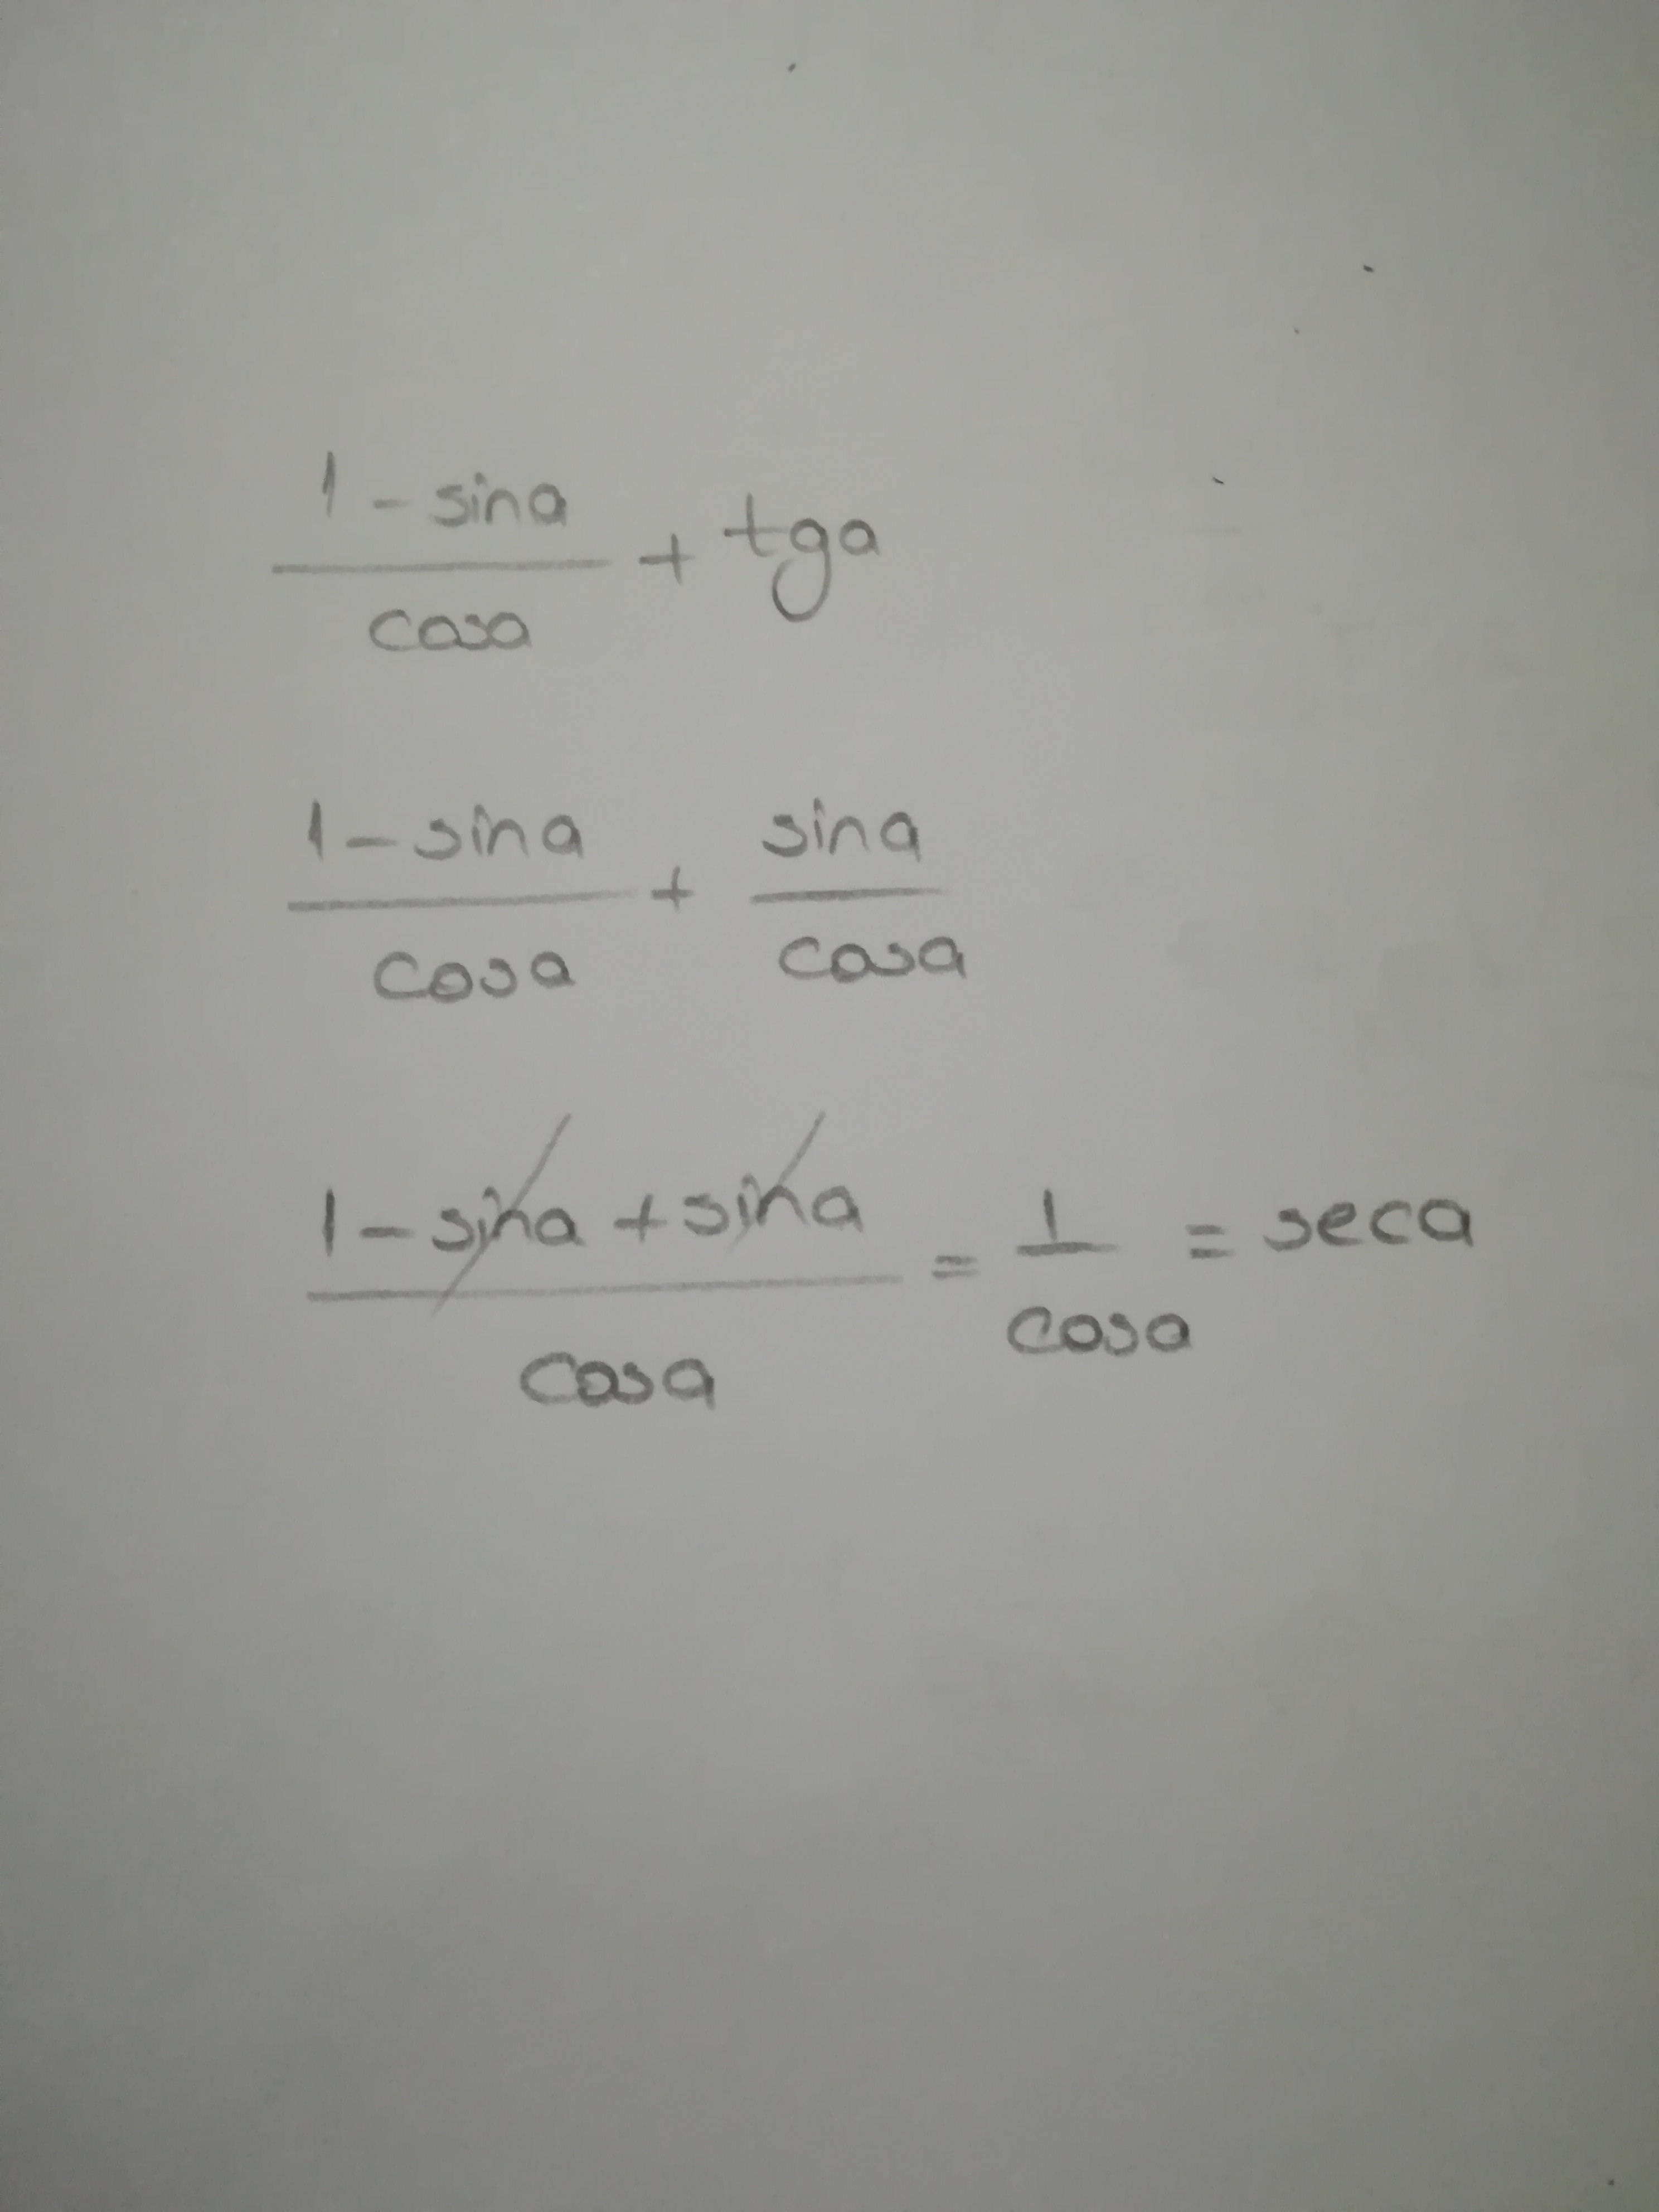 (1 - sina)/cosa + tga
(1 - sina)/cosa + sina/cosa
(1 - sina + sina)/cosa = 1/cosa = seca